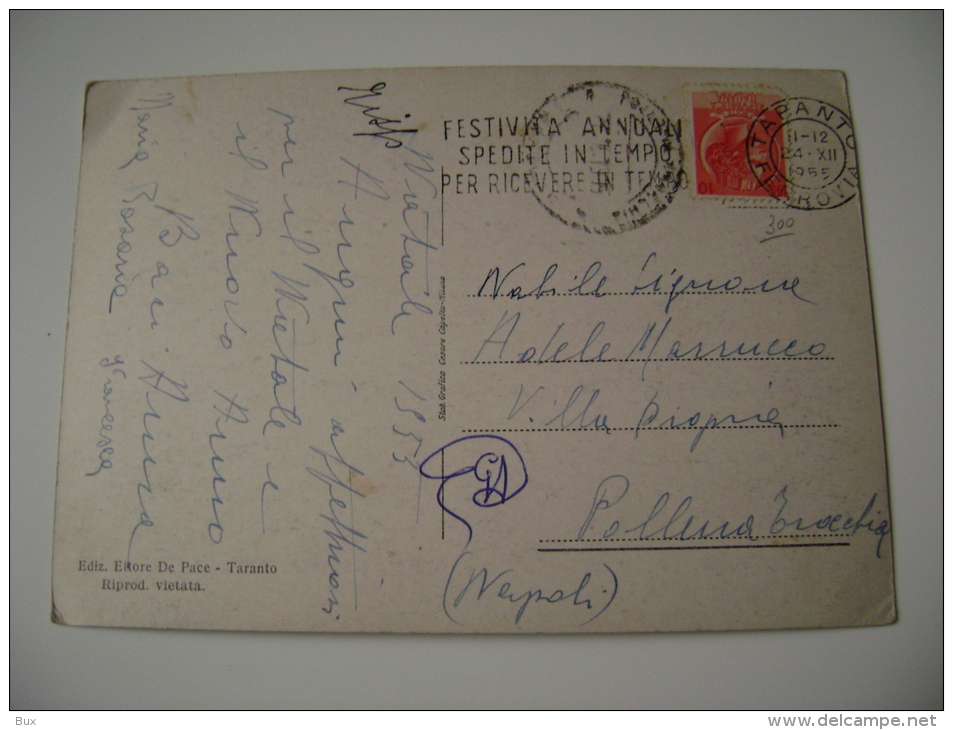 FESTIVITA ANNUALI
SPEDITE IN TEMPO
PER RICEVERE IN TEMPO
TARANTO
FERROVIA
11-12
24-XII
1955
10
300
Natale 1953
Auguri affettuosi
per il Natale e
il Nuovo Anno
Baci Anna
Maria Rosaria
Francesca
Stab. Grafico Cesare Capello-Milano
Nobile Signora
Adele Massucco
Villa propria
Pollena Trocchia
(Napoli)
Ediz. Ettore De Pace - Taranto
Riprod. vietata.
Bux
www.delcampe.net